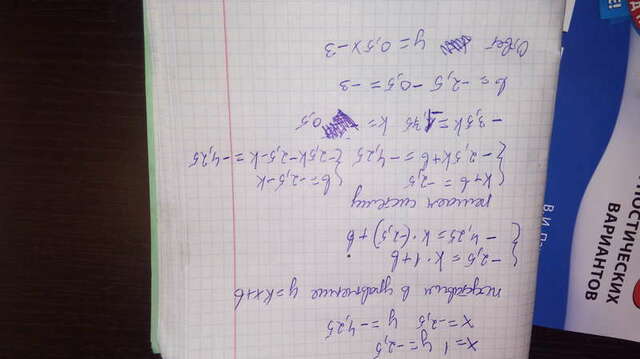 x=1 y=-2,5
x=-2,5 y=-4,25
подставим в уравнение y=kx+b
{-2,5=k·1+b
{-4,25=k·(-2,5)+b
решаем систему
{k+b=-2,5 {b=-2,5-k
{-2,5k+b=-4,25 {-2,5k-2,5-k=-4,25
-3,5k=-1,75 k= 0,5
b=-2,5-0,5=-3
Ответ y=0,5x-3
ВАРИАНТОВ